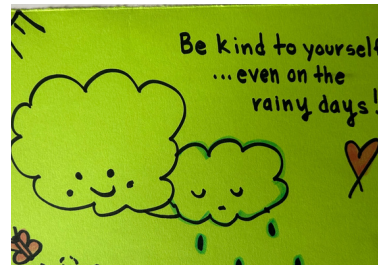 Be kind to yourself
...even on the
rainy days!